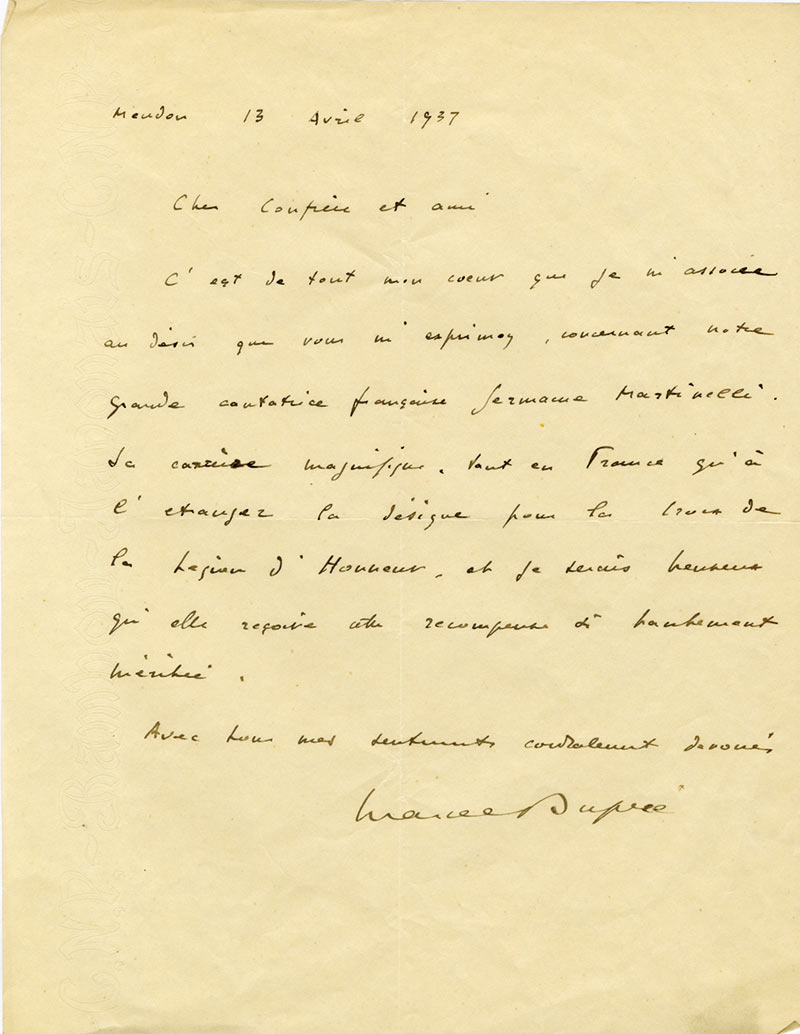 Meudon 13 Avril 1937
Cher Confrère et ami
C'est de tout mon coeur que je m'associe
au désir que vous m'exprimez, concernant notre
grande cantatrice française Germaine Martinelli.
Sa carrière magnifique, tant en France qu'à
l'etranger la désigne pour la Croix de
la Legion d'Honneur, et je serais heureux
qu'elle reçoive cette recompense si hautement
méritée.
Avec tous mes sentiments cordialement devoués
Marcel Dupré